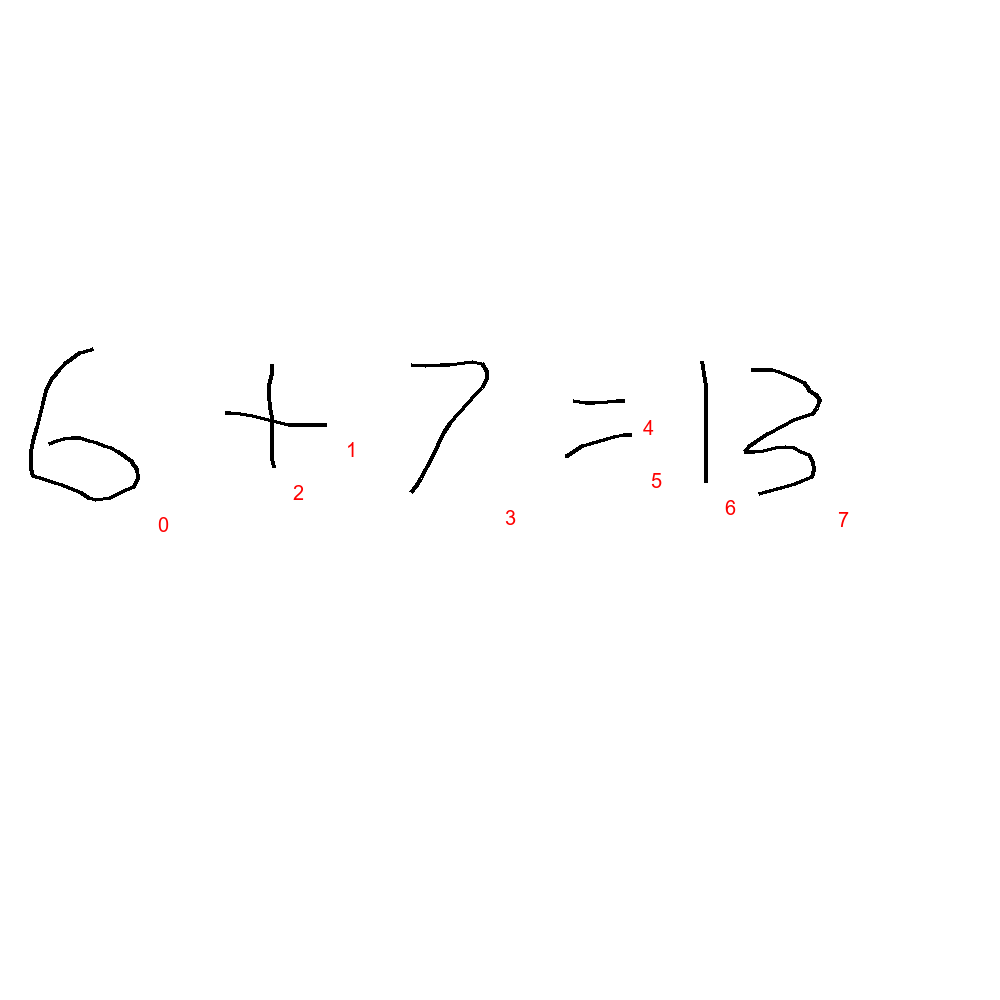 6 + 7 = 13
0 2 1 3 4 5 6 7